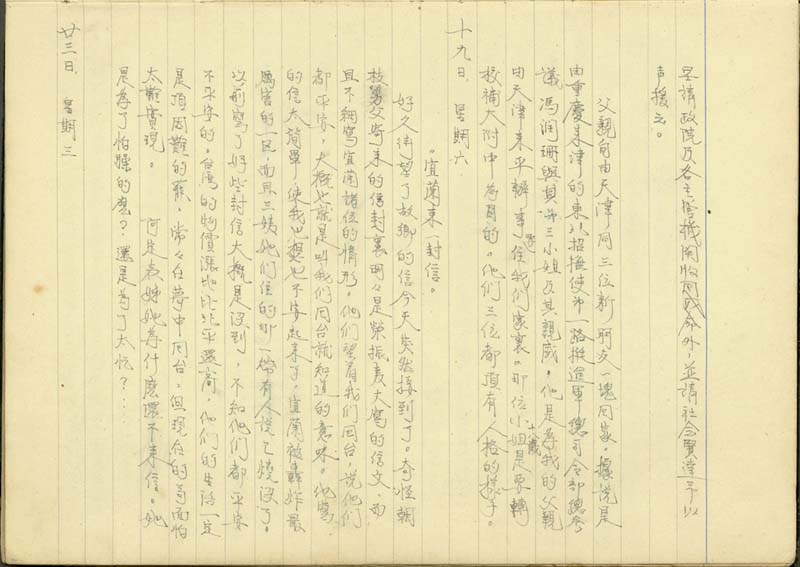 呈請政院及各主管機関收回成命外，並請社会賢達予以
声援云。
父親自由天津同三位新朋友一塊回家。據説是
由重慶來津的東北招撫使第一路挺進軍總司令部總參
議馮潤珊與其第三小姐及其親戚。他是為我的父親
由天津來平辦事住我們家裏。那位小姐是要轉
十八歲
校補大附中為目的。他們三位都頂有人格的樣子。
十九日．星期六
。宜蘭來一封信。
好久待望了故鄉的信今天突然接到了。奇怪朝
枝舅父寄來的信封裏明々是榮振表大寫的信文，而
且不細寫宜蘭諸位的情形。他們望着我們回台，説他們
都平安，大概也就是叫我們回台就知道的意味。他寫
的信太簡單，使我也想也不安起來了。宜蘭被轟炸最
厲害的一区，而且三姨她們住的那一帶有人説已燒没了。
以前寫了好些封信大概是没到，不知他們都平安
不平安的。台湾的物價漲地比北平還高，他們的生活一定
是頂困難的罷，常々在夢中回台，但現在的方面怕
太難實現。　阿足表姊她為什麼還不來信。她
是為了怕騷的麼？還是為了太忙？…
廿三日．星期三